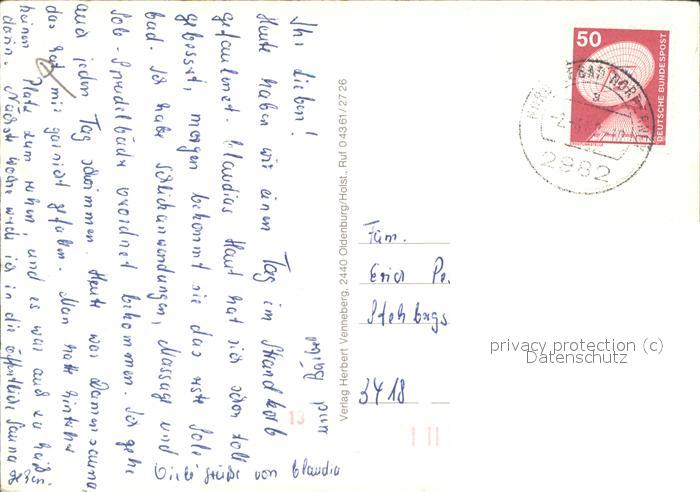 Ihr Lieben!
Heute haben wir einen Tag im Strandkorb
gefaulenzt. Claudias Haut hat sich schon toll
gebessert, morgen bekommt sie das erste Sole
bad. Ich habe Schlickanwendungen, Massage und
Sole-Sprudelbäder verordnet bekommen. Ich gehe
auch jeden Tag schwimmen. Heute war Damensauna,
das hat mir garnicht gefallen. Man hatte hinterher
keinen Platz zum ruhen, und es war auch zu heiß
darin. Nächste Woche werde ich in die öffentliche Sauna gehen.
Viele Grüße von Claudia
und
Verlag Herbert Venneberg, 2440 Oldenburg/Holst., Ruf 04361/2726
50
DEUTSCHE BUNDESPOST
2982
Fam.
Erich Pe.
3418
13
privacy protection (c)
Datenschutz